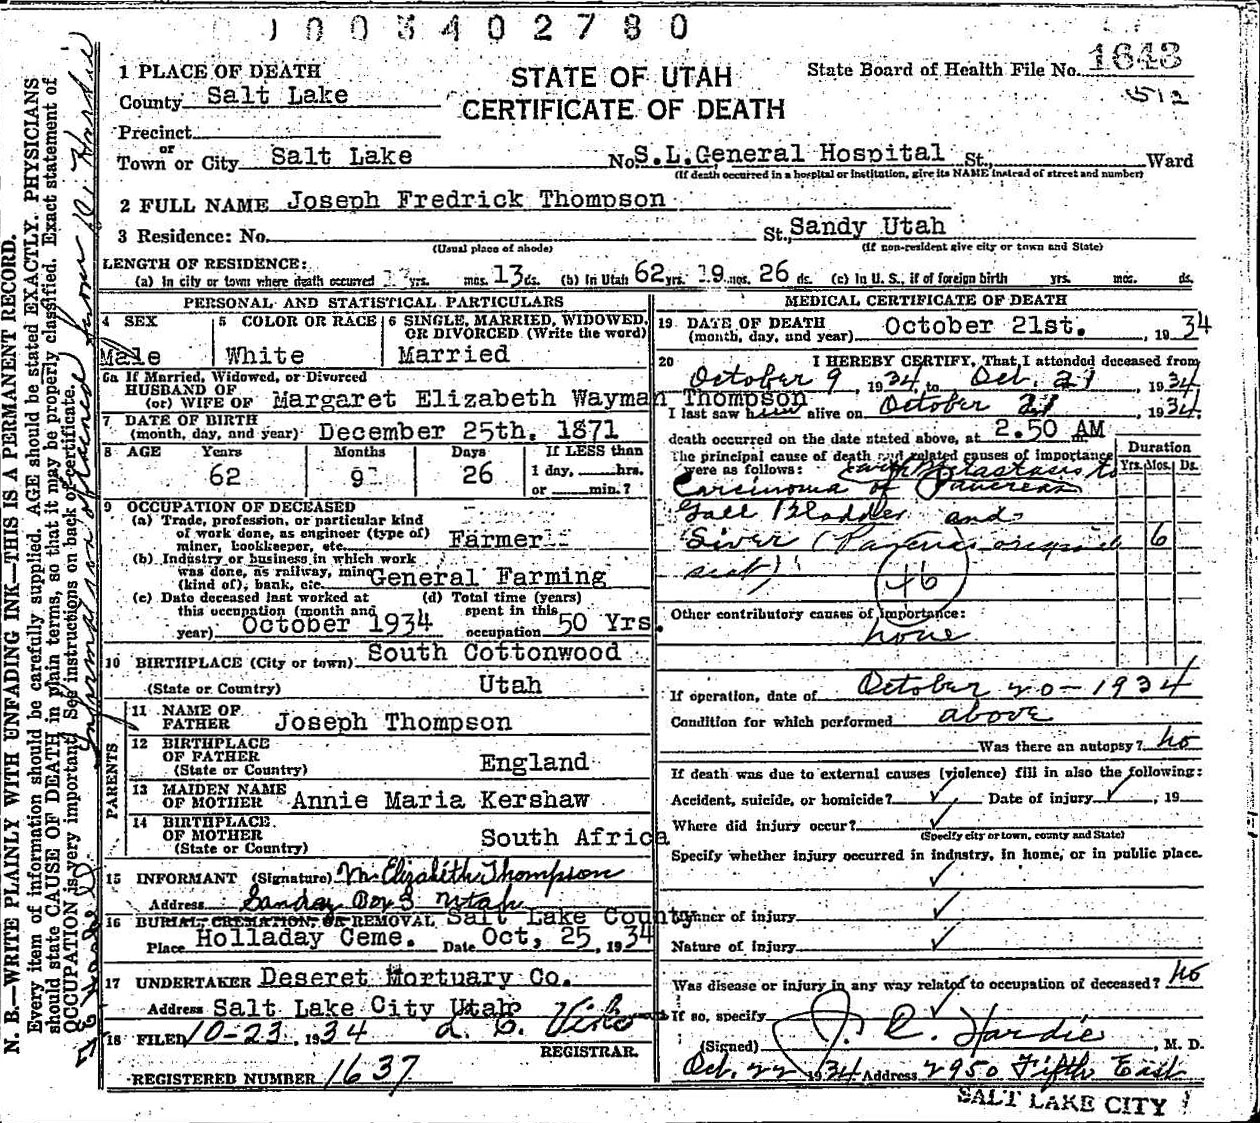 0003402780
1 PLACE OF DEATH
County Salt Lake
Precinct
or
Town or City Salt Lake
STATE OF UTAH
CERTIFICATE OF DEATH
State Board of Health File No. 1643
512
No. S.L.General Hospital St., Ward
(If death occurred in a hospital or institution, give its NAME instead of street and number)
2 FULL NAME Joseph Fredrick Thompson
3 Residence: No. St., Sandy Utah
(Usual place of abode) (If non-resident give city or town and State)
LENGTH OF RESIDENCE:
(a) In city or town where death occurred yrs. mos. 13 ds. (b) In Utah 62 yrs. 9 mos. 26 ds. (c) In U. S., if of foreign birth yrs. mos. ds.
PERSONAL AND STATISTICAL PARTICULARS
4 SEX
Male
5 COLOR OR RACE
White
6 SINGLE, MARRIED, WIDOWED, OR DIVORCED (Write the word)
Married
6a If Married, Widowed, or Divorced
HUSBAND OF
(or) WIFE OF Margaret Elizabeth Wayman Thompson
7 DATE OF BIRTH
(month, day, and year) December 25th. 1871
8 AGE Years Months Days If LESS than
62 9 26 1 day, hrs.
or min.?
9 OCCUPATION OF DECEASED
(a) Trade, profession, or particular kind
of work done, as engineer (type of)
miner, bookkeeper, etc. Farmer
(b) Industry or business in which work
was done, as railway, mine
(kind of), bank, etc. General Farming
(c) Date deceased last worked at
this occupation (month and
year) October 1934
(d) Total time (years)
spent in this
occupation 50 Yrs.
10 BIRTHPLACE (City or town) South Cottonwood
(State or Country) Utah
PARENTS
11 NAME OF
FATHER Joseph Thompson
12 BIRTHPLACE
OF FATHER
(State or Country) England
13 MAIDEN NAME
OF MOTHER Annie Maria Kershaw
14 BIRTHPLACE
OF MOTHER
(State or Country) South Africa
15 INFORMANT (Signature) Elizabeth Thompson
Address Sandy Box Utah
16 BURIAL, CREMATION, OR REMOVAL Salt Lake County
Place Holladay Ceme. Date Oct, 25, 1934
17 UNDERTAKER Deseret Mortuary Co.
Address Salt Lake City Utah
18 FILED 10-23, 1934
REGISTRAR.
REGISTERED NUMBER 1637
MEDICAL CERTIFICATE OF DEATH
19 DATE OF DEATH
(month, day, and year) October 21st. , 1934
20 I HEREBY CERTIFY, That I attended deceased from
October 9, 1934, to Oct. 21, 1934
I last saw him alive on October 21, 1934.
death occurred on the date stated above, at 2.50 AM
The principal cause of death and related causes of importance
were as follows:
Duration
Yrs. Mos. Ds.
with Metastasis to
Carcinoma of Pancreas
Gall Bladder and
Liver (Pancreas original 6
seat)
46
Other contributory causes of importance:
none
If operation, date of October 20-1934
Condition for which performed above
Was there an autopsy? no
If death was due to external causes (violence) fill in also the following:
Accident, suicide, or homicide? ✓ Date of injury ✓, 19
Where did injury occur? ✓
(Specify city or town, county and State)
Specify whether injury occurred in industry, in home, or in public place.
✓
Manner of injury ✓
Nature of injury ✓
Was disease or injury in any way related to occupation of deceased? no
If so, specify ✓
(Signed) J. R. Hardie, M. D.
Oct. 22 1934 Address 2950 Fifth East
SALT LAKE CITY
N. B.—WRITE PLAINLY WITH UNFADING INK—THIS IS A PERMANENT RECORD.
Every item of information should be carefully supplied. AGE should be stated EXACTLY. PHYSICIANS
should state CAUSE OF DEATH in plain terms, so that it may be properly classified. Exact statement of
OCCUPATION is very important. See instructions on back of certificate.